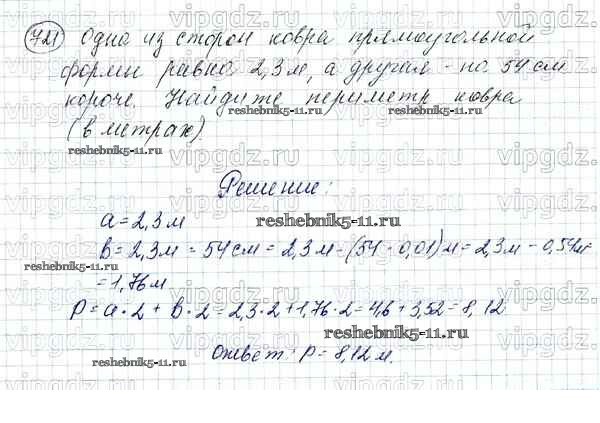 721 Одна из сторон ковра прямоугольной
формы равна 2,3 м, а другая - на 54 см
короче. Найдите периметр ковра
(в метрах)
reshebnik5-11.ru
reshebnik5-11.ru
reshebnik5-11.ru
Решение:
a = 2,3 м
reshebnik5-11.ru
в = 2,3 м = 54 см = 2,3 м - (54 · 0,01) м = 2,3 м - 0,54 м =
reshebnik5-11.ru
= 1,76 м
P = a · 2 + в · 2 = 2,3 · 2 + 1,76 · 2 = 4,6 + 3,52 = 8,12
reshebnik5-11.ru
Ответ: P = 8,12 м.
reshebnik5-11.ru
vipgdz.ru